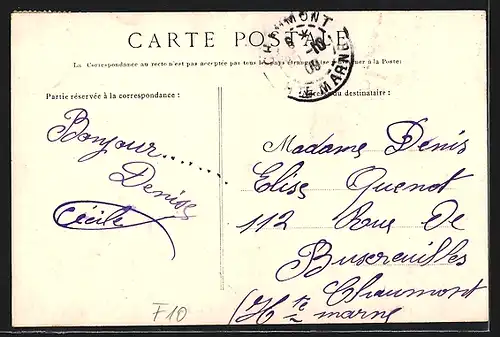 CARTE POSTALE
CHAUMONT
8 -10
09
HTE MARNE
La Correspondance au recto n'est pas acceptée par tous les pays étrangers à la Poste)
Partie réservée à la correspondance :
du destinataire :
Bonjour........
Denise
Cécile
Madame Denis
Elise Quenot
112 Rue de
Buxereuilles
Chaumont
(Hte marne
F10